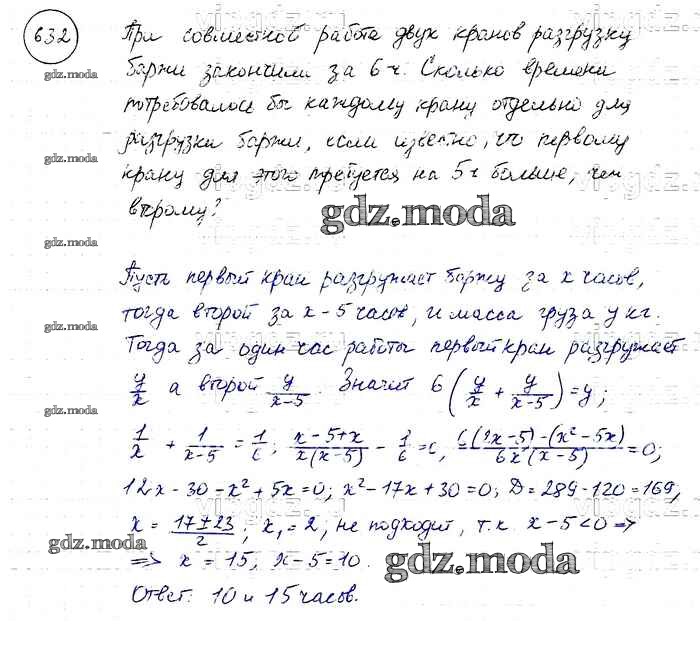 632
При совместной работе двух кранов разгрузку
баржи закончили за 6 ч. Сколько времени
потребовалось бы каждому крану отдельно для
разгрузки баржи, если известно, что первому
крану для этого требуется на 5 ч больше, чем
второму?
gdz.moda
gdz.moda
gdz.moda
gdz.moda
Пусть первый кран разгружает баржу за x часов,
тогда второй за x - 5 часов, и масса груза y кг.
gdz.moda
Тогда за один час работы первый кран разгружает
y/x а второй y/(x-5). Значит 6(y/x + y/(x-5)) = y;
gdz.moda
1/x + 1/(x-5) = 1/6; (x-5+x)/(x(x-5)) - 1/6 = 0, (6(2x-5)-(x²-5x))/(6x(x-5)) = 0;
gdz.moda
12x - 30 - x² + 5x = 0; x² - 17x + 30 = 0; D = 289 - 120 = 169,
x = (17±23)/2; x₁ = 2, не подходит, т.к. x - 5 < 0 =>
gdz.moda
=> x = 15, x - 5 = 10.
gdz.moda
Ответ: 10 и 15 часов.